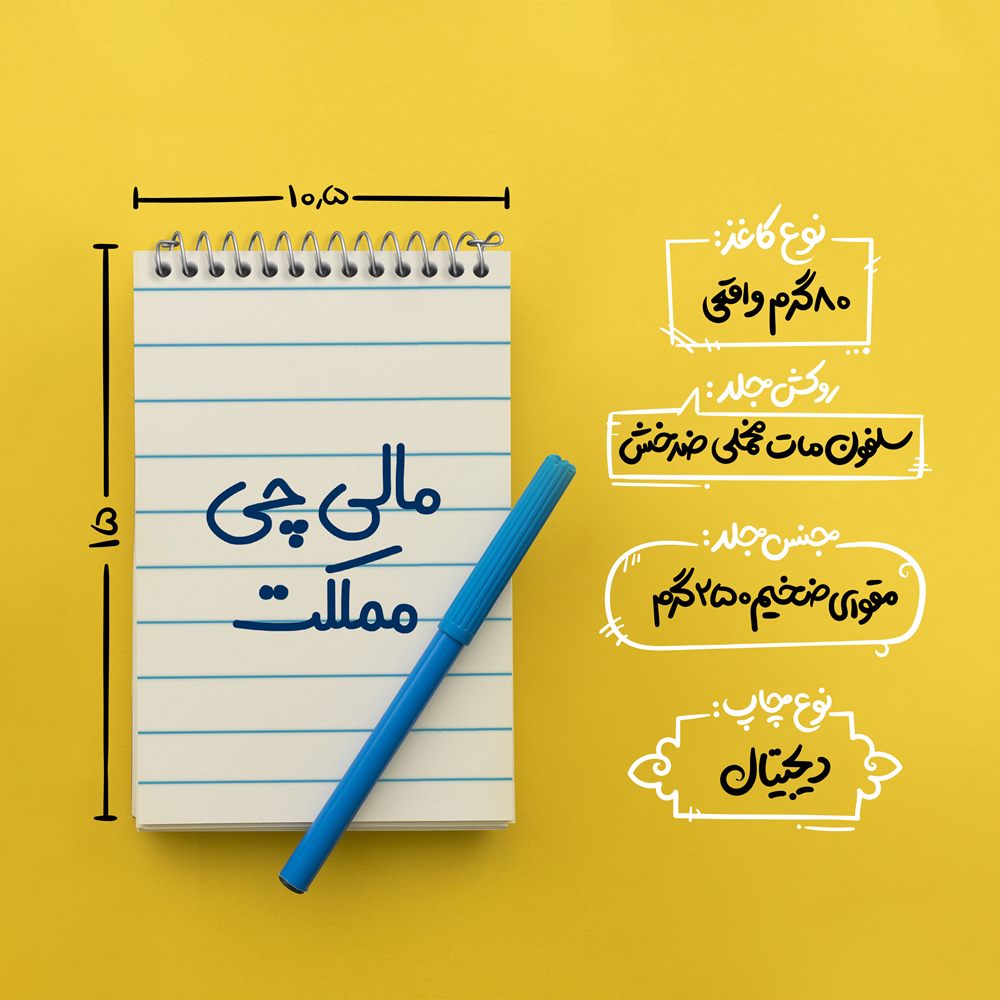 ۱۰٫۵
۱۵
مالی چی
مملکت
نوع کاغذ:
۸۰گرم واقعی
روکش جلد:
سلفون مات مخملی ضدخش
جنس جلد:
مقوای ضخیم ۲۵۰گرم
نوع چاپ:
دیجیتال